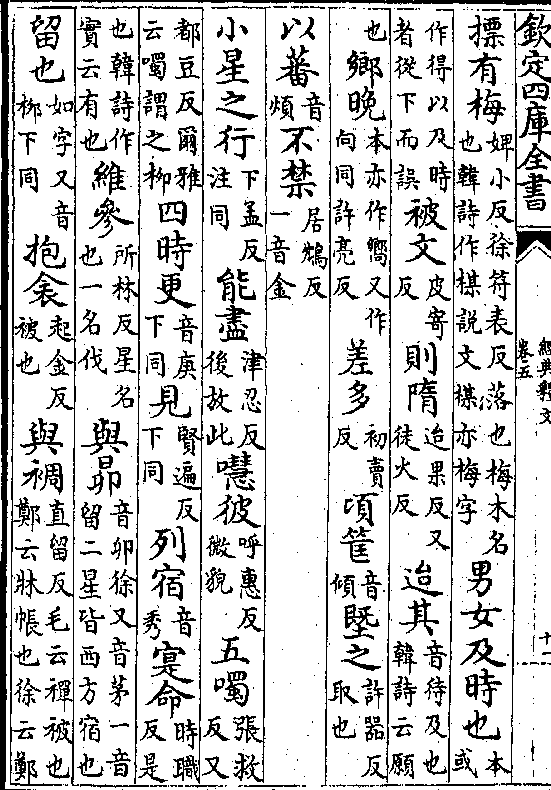 欽定四庫全書
經典釋文
卷五
十一
摽有梅婢小反徐符表反落也梅木名也韓詩作楳說文楳亦梅字男女及時也本或
作得以及時者從下而誤被文皮寄反則隋迨果反又徒火反迨其音待及也韓詩云願
也鄉晚本亦作嚮又作向同許亮反差多初賣反頃筐音傾墍之許器反取也
以蕃音煩不禁居鴆反一音金
小星之行下孟反注同能盡津忍反後故此嘒彼呼惠反微貌五噣張救反又
都豆反爾雅云噣謂之柳四時更音庚下同見賢遍反下同列宿音秀寔命時職反是
也韓詩作實云有也維參所林反星名也一名伐與昴音卯徐又音茅一音留二星皆西方宿也
留也如字又音柳下同抱衾起金反被也與裯直留反毛云襌被也鄭云牀帳也徐云鄭